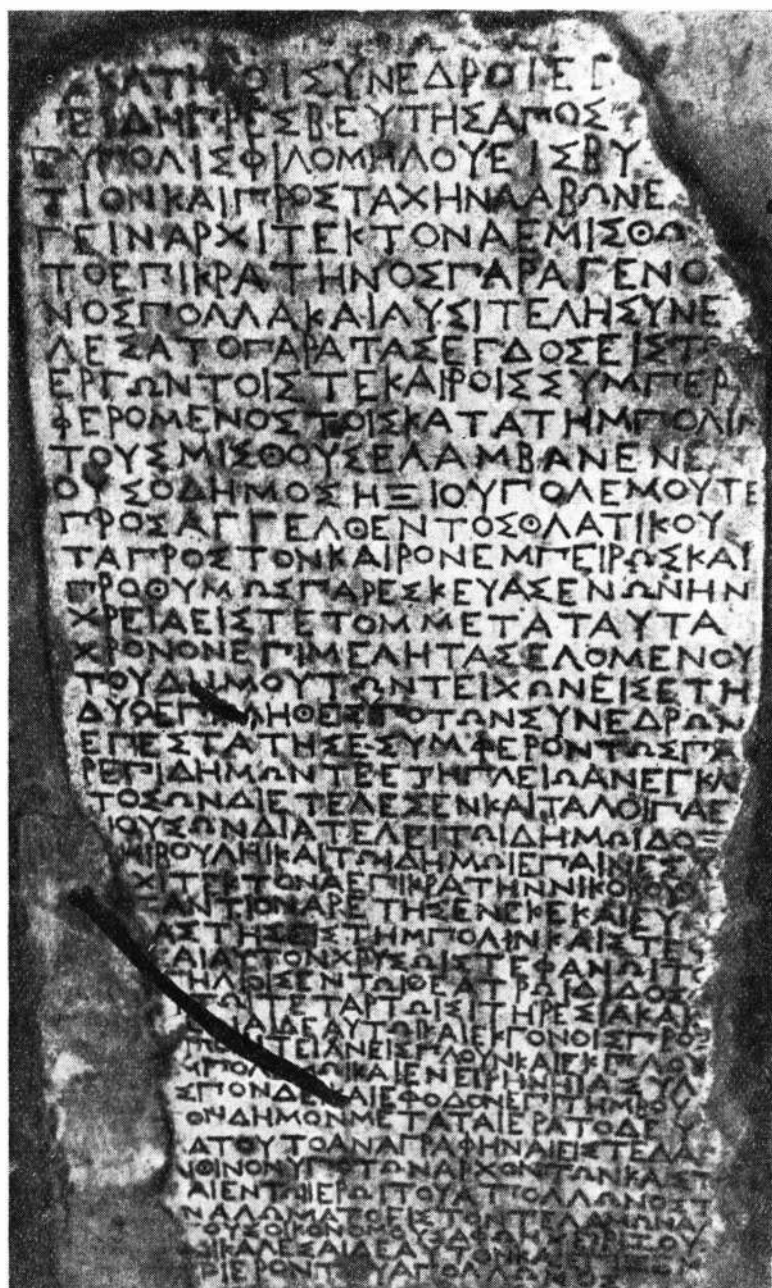 ΚΑΤΗ ΟΙΣΥΝΕΔΡΟΙΕΓ
ΕΙΔΗΠΡΕΣΒΕΥΤΗΣΑΠΟΣ
ΥΠΟΛΙΣΦΙΛΟΜΗΛΟΥΕΙΣΒΥ
ΤΙΟΝΚΑΙΠΡΟΣΤΑΧΗΝΛΑΒΩΝΕ
ΓΕΙΝΑΡΧΙΤΕΚΤΟΝΑΕΜΙΣΘΩ
ΤΟΕΠΙΚΡΑΤΗΝΟΣΠΑΡΑΓΕΝΟ
ΝΟΣΠΟΛΛΑΚΑΙΛΥΣΙΤΕΛΗΣΥΝΕ
ΛΕΣΑΤΟΠΑΡΑΤΑΣΕΓΔΟΣΕΙΣΤ
ΕΡΓΩΝΤΟΙΣΤΕΚΑΙΡΟΙΣΣΥΜΠΕΡ
ΦΕΡΟΜΕΝΟΣΤΟΙΣΚΑΤΑΤΗΜΠΟΛΙΝ
ΤΟΥΣΜΙΣΘΟΥΣΕΛΑΜΒΑΝΕΝΕ
ΟΥΣΟΔΗΜΟΣΗΞΙΟΥΠΟΛΕΜΟΥΤΕ
ΠΡΟΣΑΓΓΕΛΘΕΝΤΟΣΘΛΑΤΙΚΟΥ
ΤΑΠΡΟΣΤΟΝΚΑΙΡΟΝΕΜΠΕΙΡΩΣΚΑΙ
ΠΡΟΘΥΜΩΣΠΑΡΕΣΚΕΥΑΣΕΝΩΝΗΝ
ΧΡΕΙΑΕΙΣΤΕΤΟΜΜΕΤΑΤΑΥΤΑ
ΧΡΟΝΟΝΕΠΙΜΕΛΗΤΑΣΕΛΟΜΕΝΟΥ
ΤΟΥΔΗΜΟΥΤΩΝΤΕΙΧΩΝΕΙΣΕΤΗ
ΔΥΟΕΠΙ ΛΗΘΕΣΥΠΟΤΩΝΣΥΝΕΔΡΩΝ
ΕΠΕΣΤΑΤΗΣΕΣΥΜΦΕΡΟΝΤΩΣΠΑ
ΡΕΠΙΔΗΜΩΝΤΕΕΤΗΠΛΕΙΩΑΝΕΓΚΛ
ΤΟΣΩΝΔΙΕΤΕΛΕΣΕΝΚΑΙΤΑΛΟΙΠΑΕ
ΙΟΥΣΩΝΔΙΑΤΕΛΕΙΤΩΙΔΗΜΩΙΔΟΞ
ΒΟΥΛΗΙΚΑΙΤΩΙΔΗΜΩΙΕΠΑΙΝΕΣ
ΧΙΤΕΚΤΟΝΑΕΠΙΚΡΑΤΗΝΝΙΚΟΒΟΥ
ΑΝΤΙΟΝΑΡΕΤΗΣΕΝΕΚΕΚΑΙΕΥ
ΑΣΤΗΣΕΙΣΤΗΜΠΟΛΙΝΚΑΙΣΤΕ
ΑΙΑΥΤΟΝΧΡΥΣΩΙΣΤΕΦΑΝΩΙ
ΕΝΤΩΙΘΕΑΤΡΩΙΔΙΔΟΣ
ΤΩΙΤΕΤΑΡΤΩΙΣΙΤΗΡΕΣΙΑΚΑ
ΔΕΑΥΤΩΙΚΑΙΕΚΓΟΝΟΙΣΠΡΟ
ΤΕΙΑΝΕΙΣΠΛΟΥΝΚΑΙΕΚΠΛΟΥ
ΠΟΛ ΚΑΙΕΝΕΙΡΗΝΗΙΑΣΥΛ
ΣΠΟΝΔΕ ΚΑΙΕΦΟΔΟΝΕΠΙΤΗΜΒΟΥ
ΟΝΔΗΜΟΝΜΕΤΑΤΑΙΕΡΑΤΟΔΕ
ΑΤΟΥΤΟΑΝΑΓΡΑΦΗΝΑΙΕΙΣΤΕΛΑ
ΘΙΝΟΝΥΠΟΤΩΝΑΡΧΟΝΤΩΝΚΑ
ΑΙΕΝΤΩΙΙΕΡΩΙΤΟΥΑΠΟΛΛΩΝΟΣ
ΝΑΛΩΜΑΤΟΕΙΣΤΟΝΤΕΛΑΜΩΝΑ